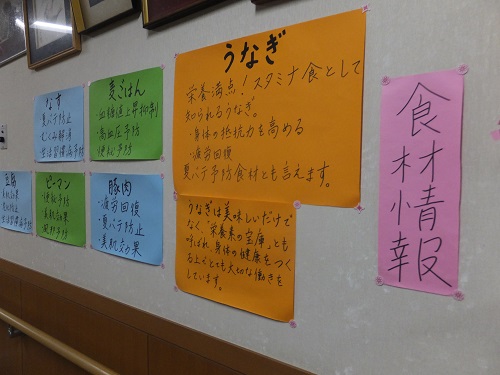 食材情報
うなぎ
栄養満点！スタミナ食として
知られるうなぎ。
・身体の抵抗力を高める
・疲労回復
夏バテ予防食材とも言えます。
うなぎは美味しいだけで
なく、「栄養素の宝庫」とも
呼ばれ、身体の健康をつく
る上でとても大切な働きを
しています。
麦ごはん
・血糖値上昇抑制
・高血圧予防
・便秘予防
なす
・夏バテ防止
・むくみ解消
・生活習慣病予防
豚肉
・疲労回復
・夏バテ防止
・美肌効果
ピーマン
・便秘予防
・美肌効果
・風邪予防
豆腐